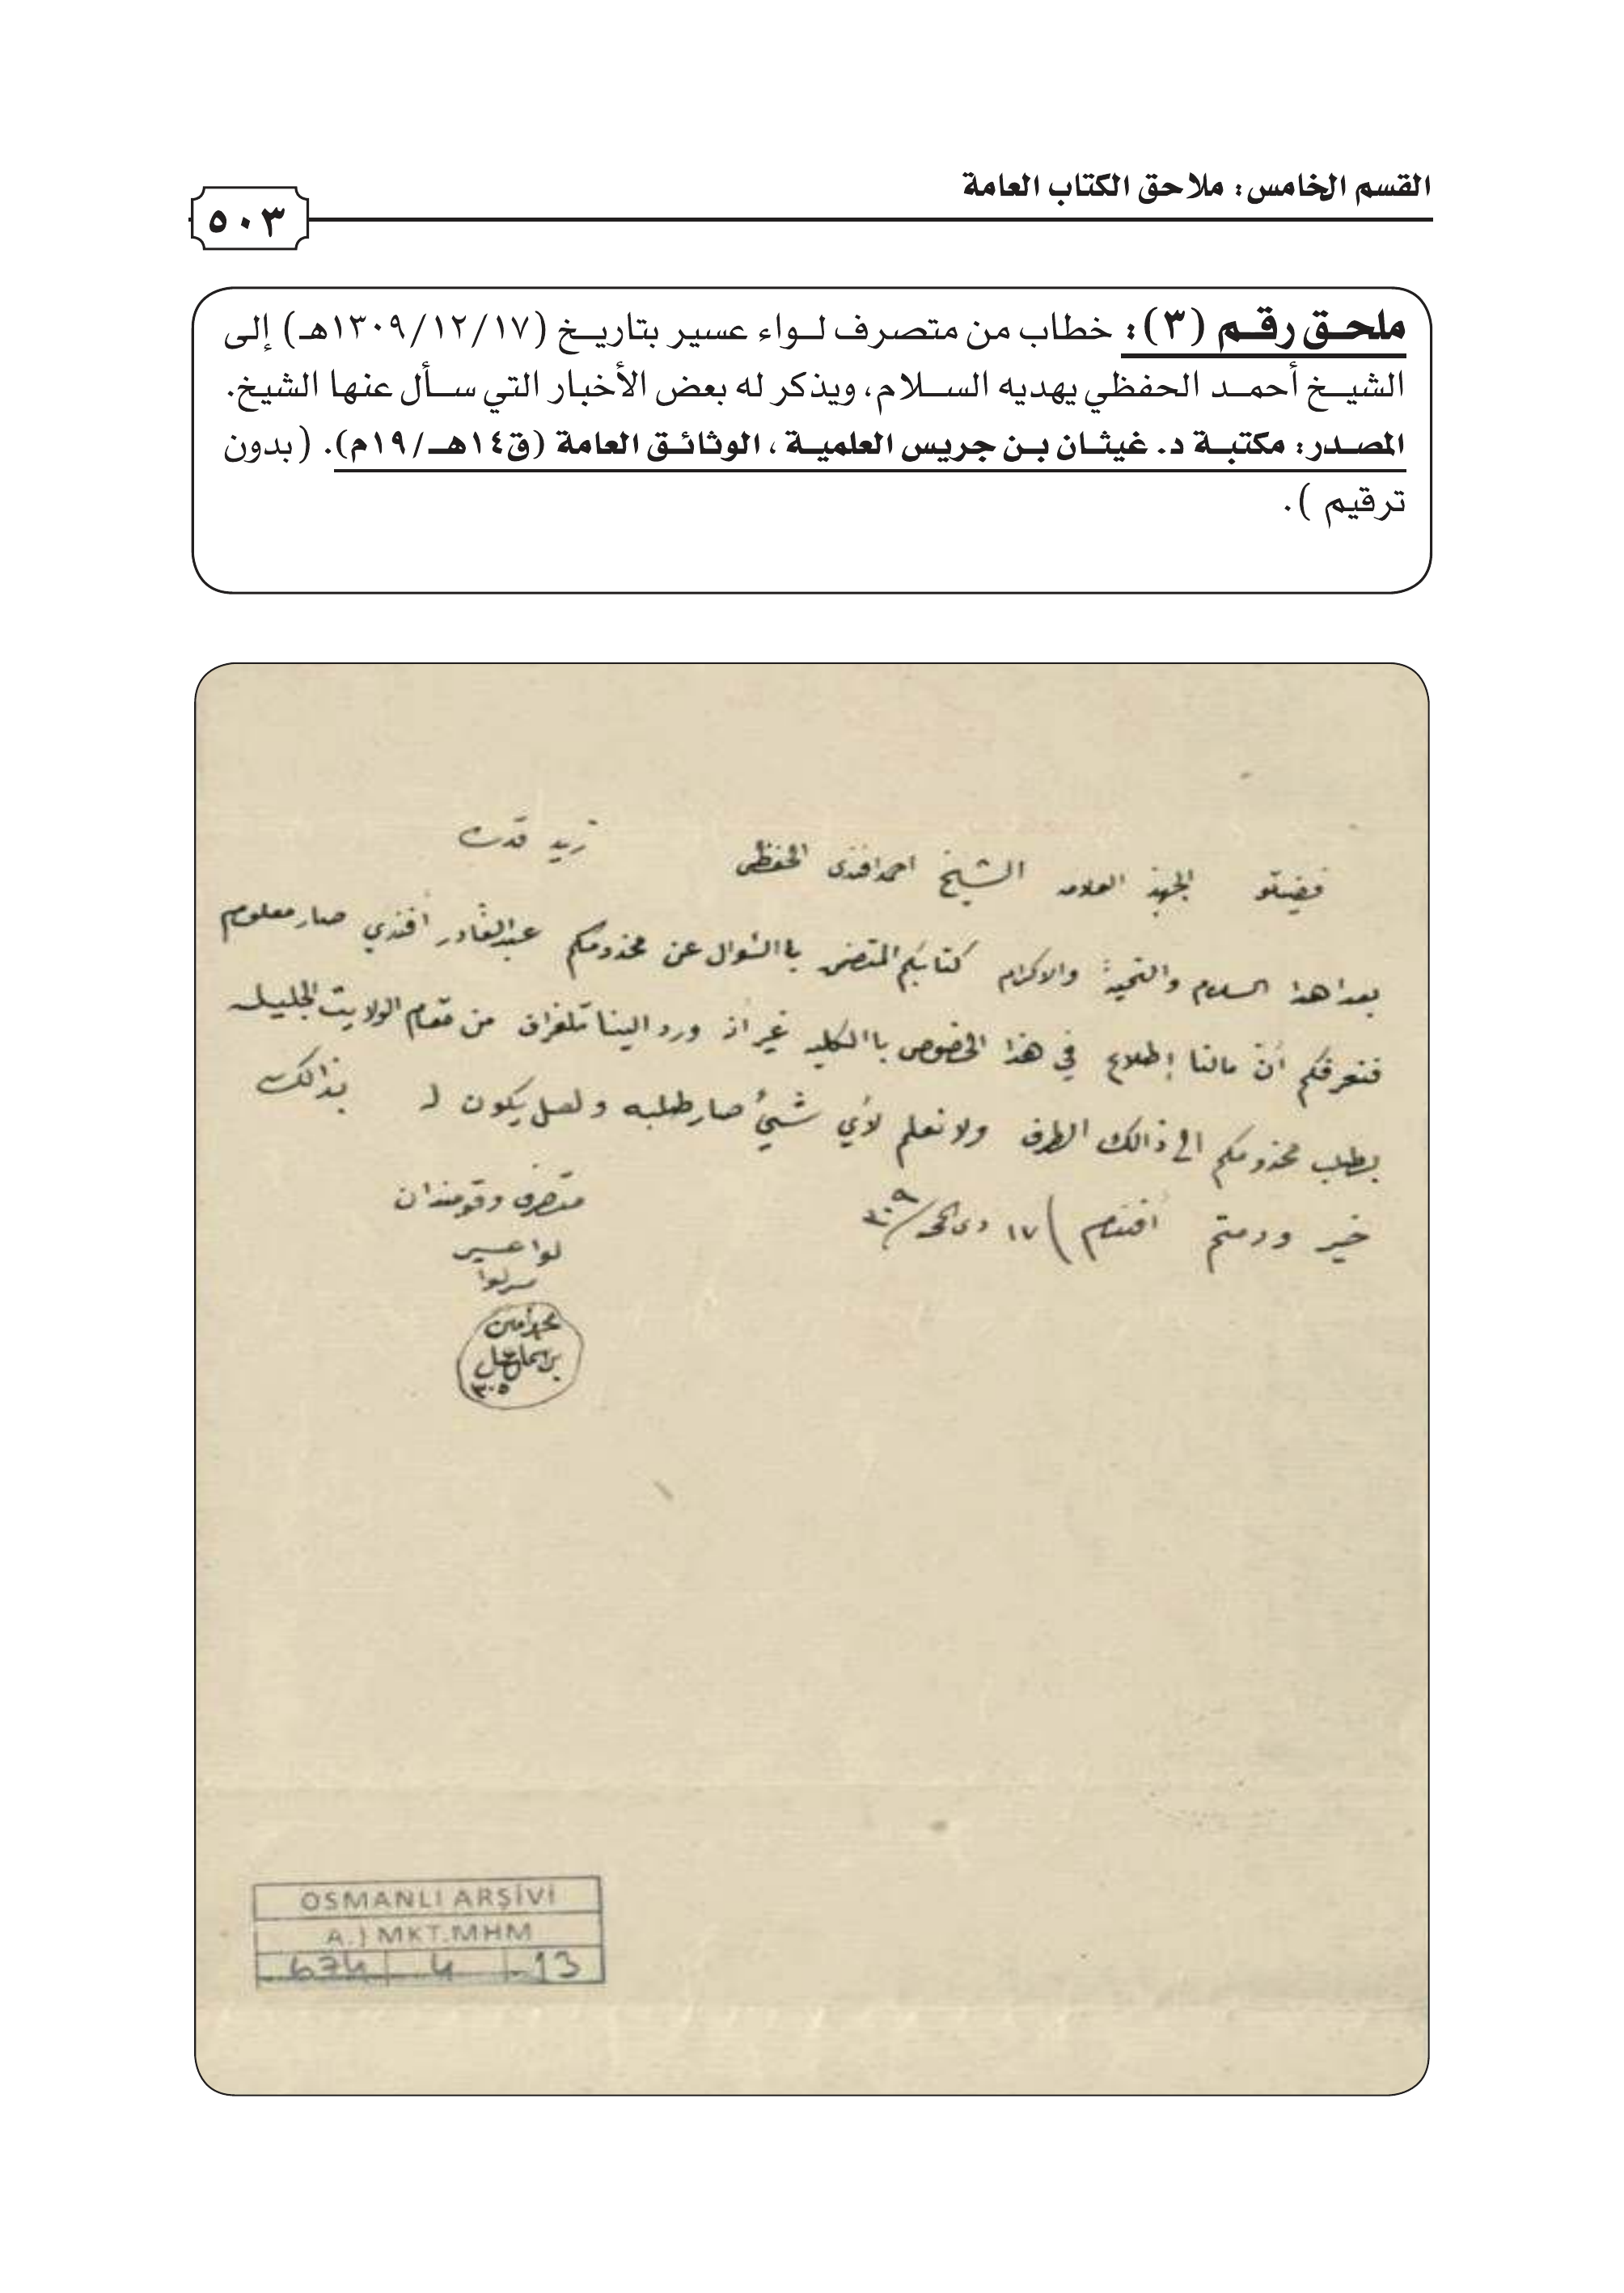 القسم الخامس: ملاحق الكتاب العامة
٥٠٣
ملحق رقم (٣): خطاب من متصرف لواء عسير بتاريخ (١٣٠٩/١٢/١٧هـ) إلى
الشيخ أحمد الحفظي يهديه السلام، ويذكر له بعض الأخبار التي سأل عنها الشيخ.
المصدر: مكتبة د. غيثان بن جريس العلمية، الوثائق العامة (ق١٤هـ/١٩م). (بدون
ترقيم ).
فضيلتو الجهبذ العلامه الشيخ احمد افندى الحفظى زيد قدره
بعد اهدا السلام والتحية والاكرام كتابكم المتضمن باالسؤال عن مخدومكم عبدالقادر أفندي صار معلوم
فنعرفكم أن مالنا إطلاع في هذا الخصوص باالكليه غير أنه ورد الينا تلغراف من مقام الولايت الجليله
بطلب مخدومكم الى ذالك الطرف ولا نعلم لأي شيئ صار طلبه ولعل يكون له بذالك
خير ودمتم أفندم ١٧ ذى الحجه ٣٠٩
متصرف وقومندان
لوا عسير
ميرلوا
محمد أمين
بن اسماعيل
٣٠٥
OSMANLI ARŞİVİ
A.} MKT.MHM
674 4 13